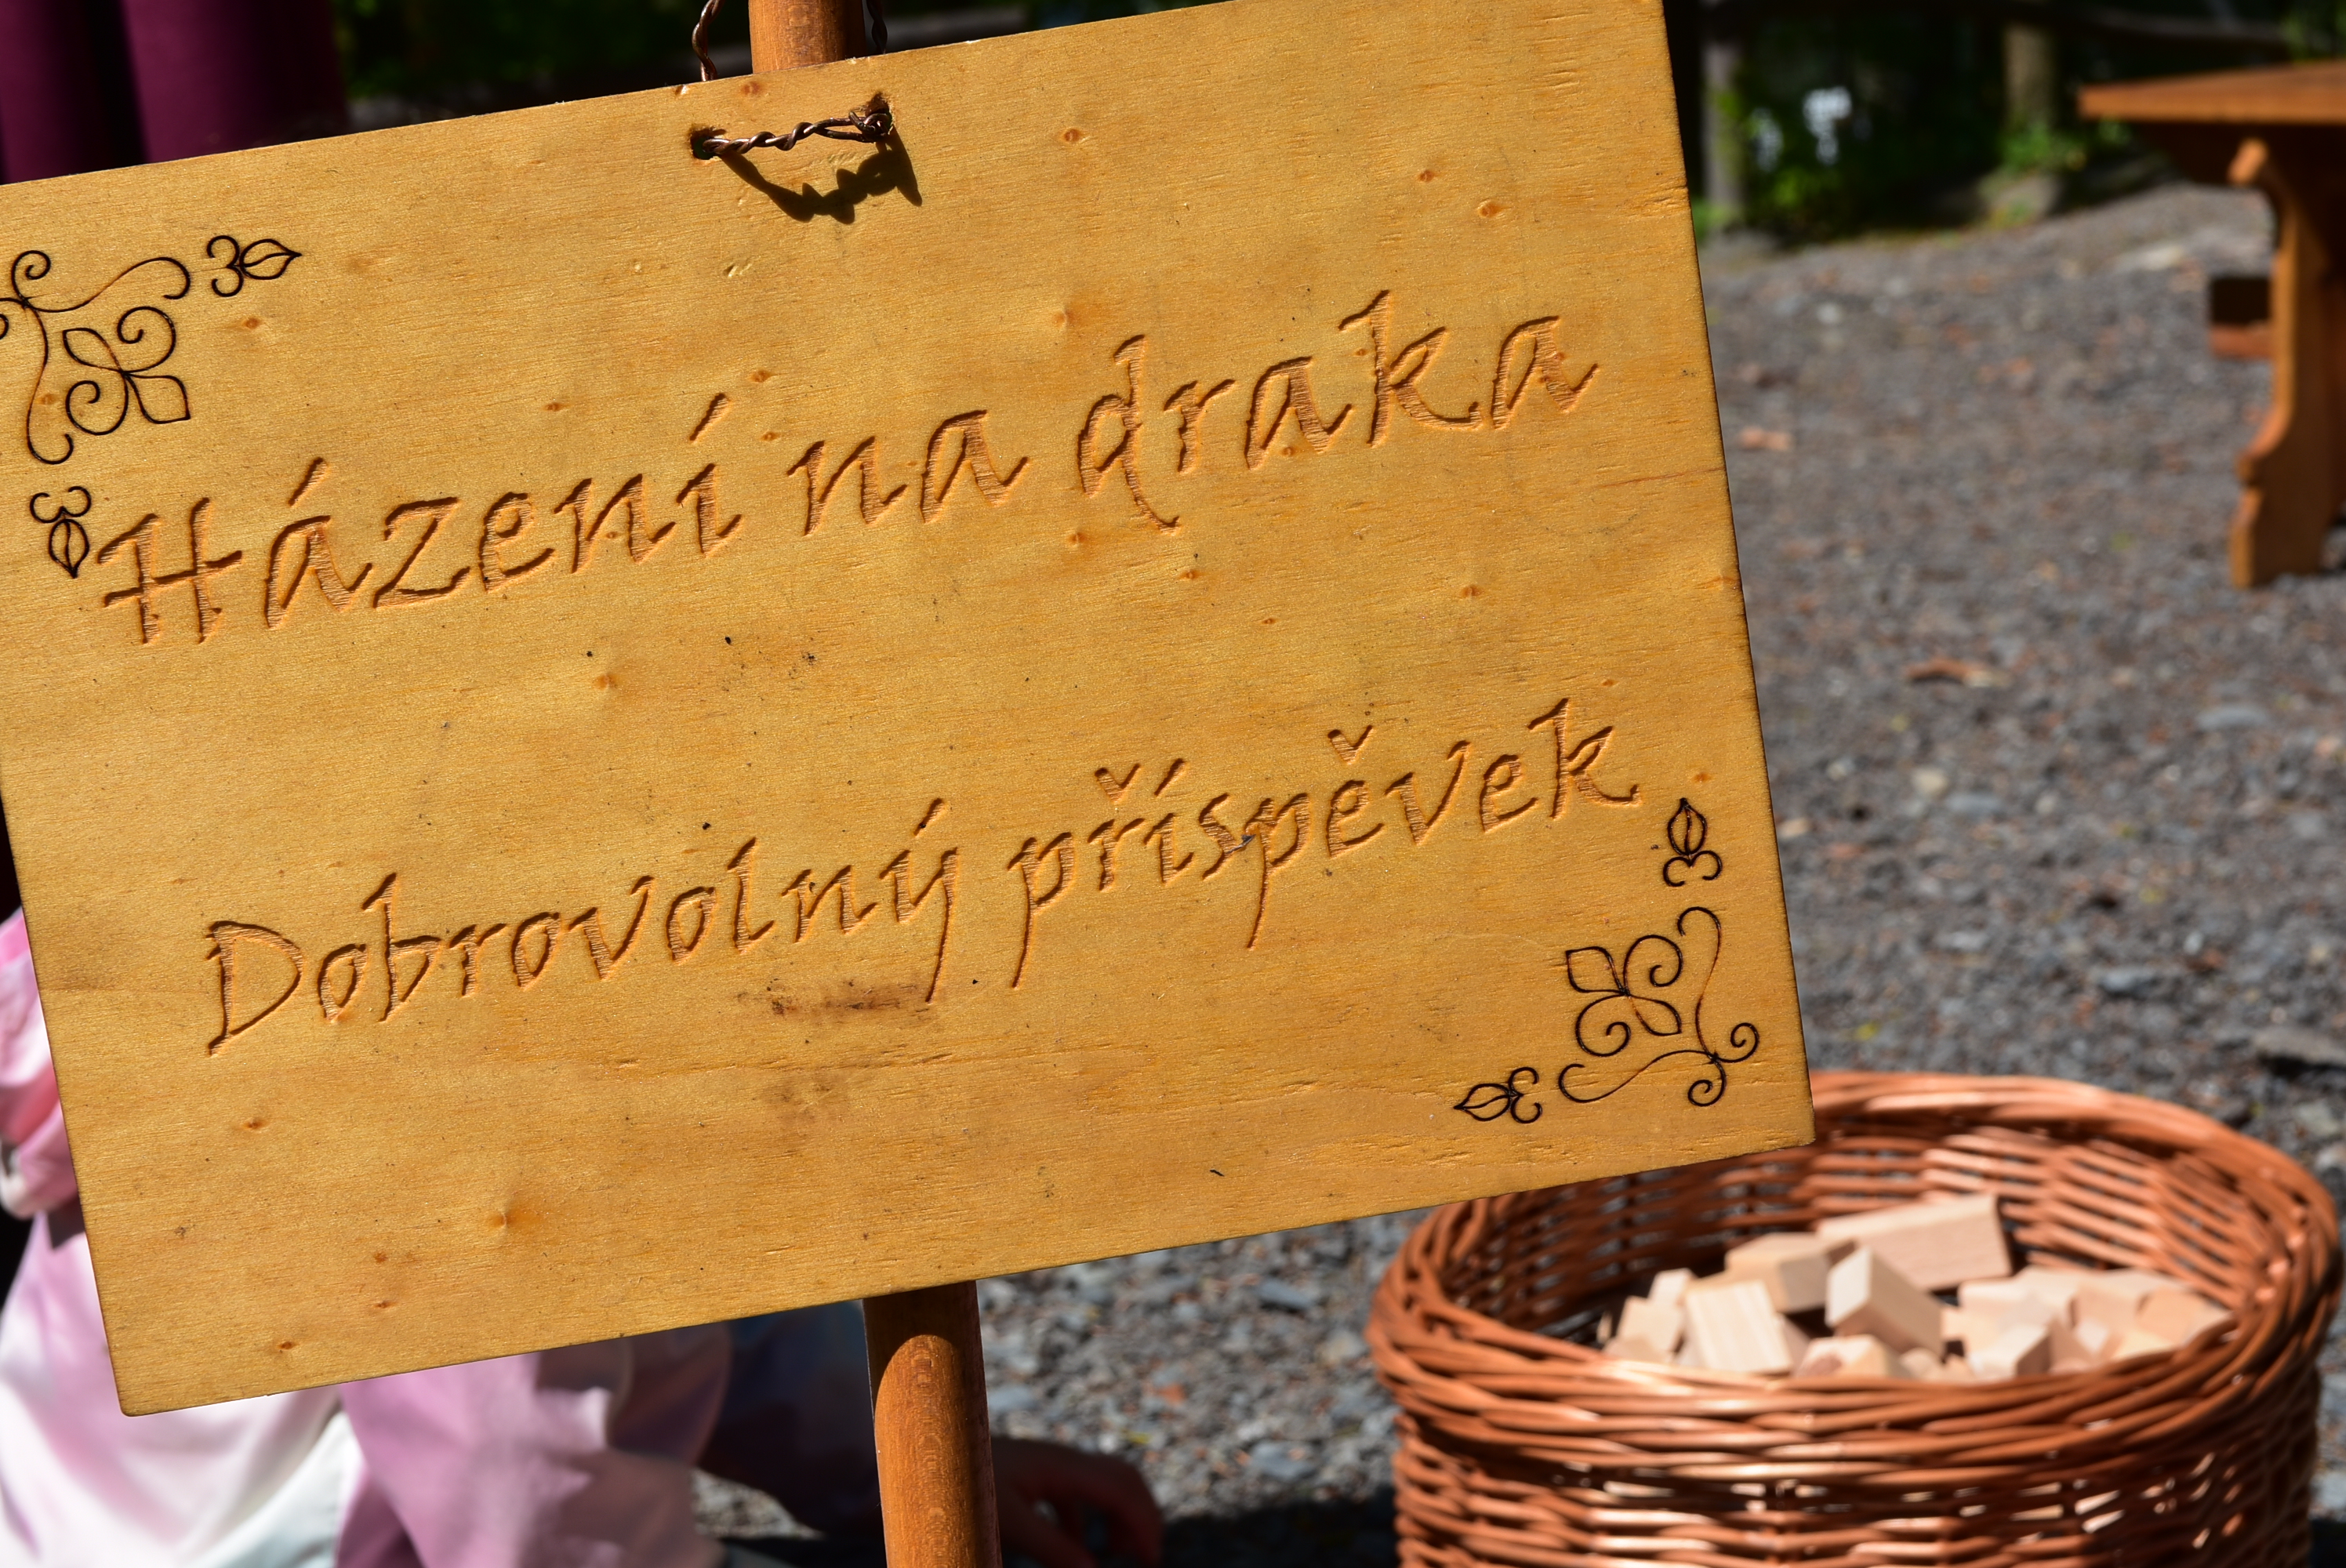 Házení na draka
Dobrovolný příspěvek